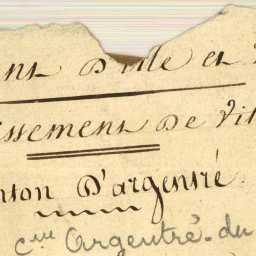 ent D'ile et V
issement De Vit
nton D'argentré.
cne Argentré-du